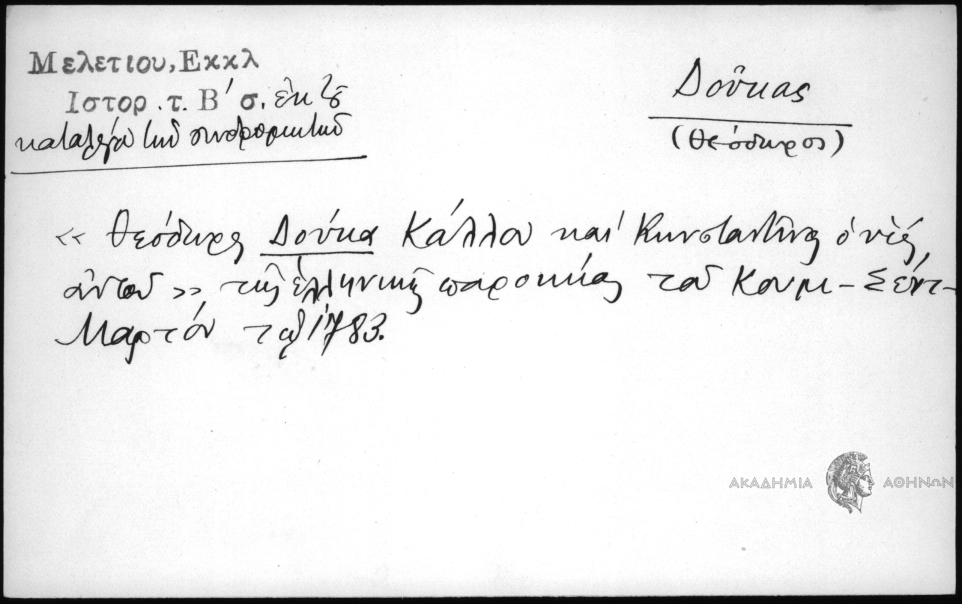 Μελετίου, Εκκλ
Ιστορ. τ. Β' σ. ἐκ τοῦ
καταλόγου τῶν συνδρομητῶν
Δούκας
(Θεόδωρος)
« Θεόδωρος Δούκα Κάλλου καὶ Κωνσταντῖνος ὁ υἱός
αὐτοῦ » τῆς ἑλληνικῆς παροικίας τοῦ Κουμ-Σέντ-
Μαρτόν τῷ 1783.
ΑΚΑΔΗΜΙΑ ΑΘΗΝΩΝ